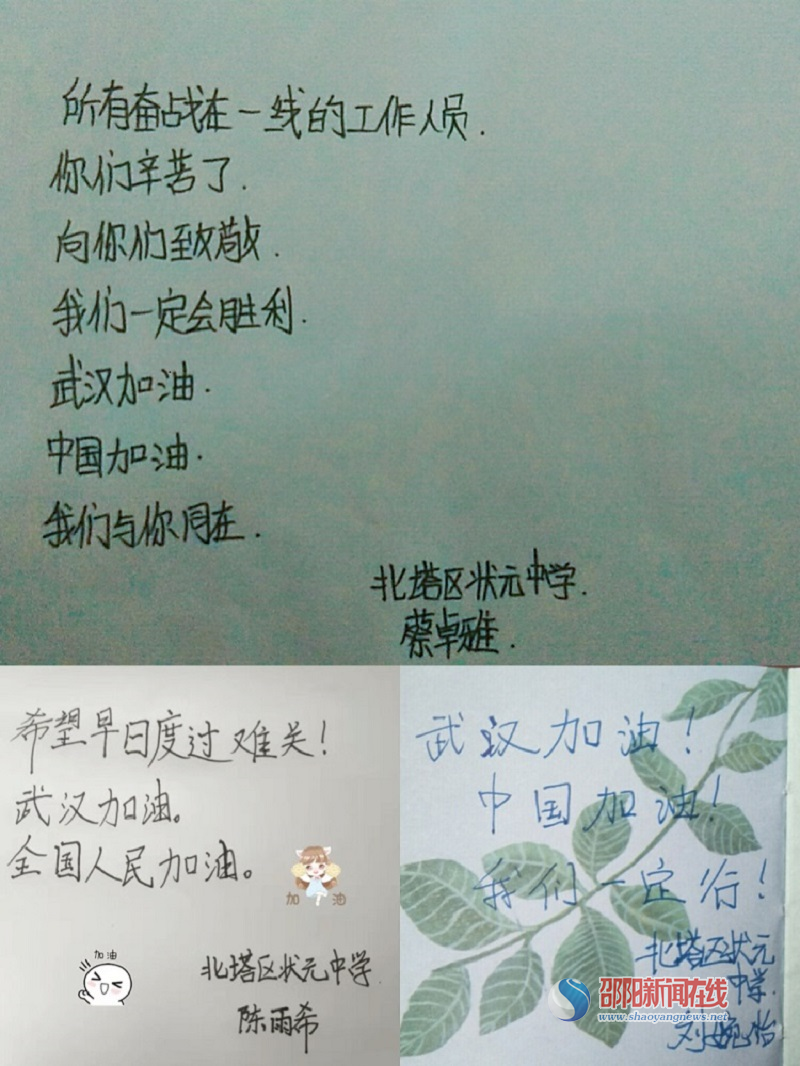 所有奋战在一线的工作人员.
你们辛苦了.
向你们致敬.
我们一定会胜利.
武汉加油.
中国加油.
我们与你同在.
北塔区状元中学.
蔡卓雅.
希望早日度过难关!
武汉加油。
全国人民加油。
加油
加油
北塔区状元中学
陈雨希
武汉加油!
中国加油!
我们一定行!
北塔区状元
中学.
刘婉怡
邵阳新闻在线
www.shaoyangnews.net